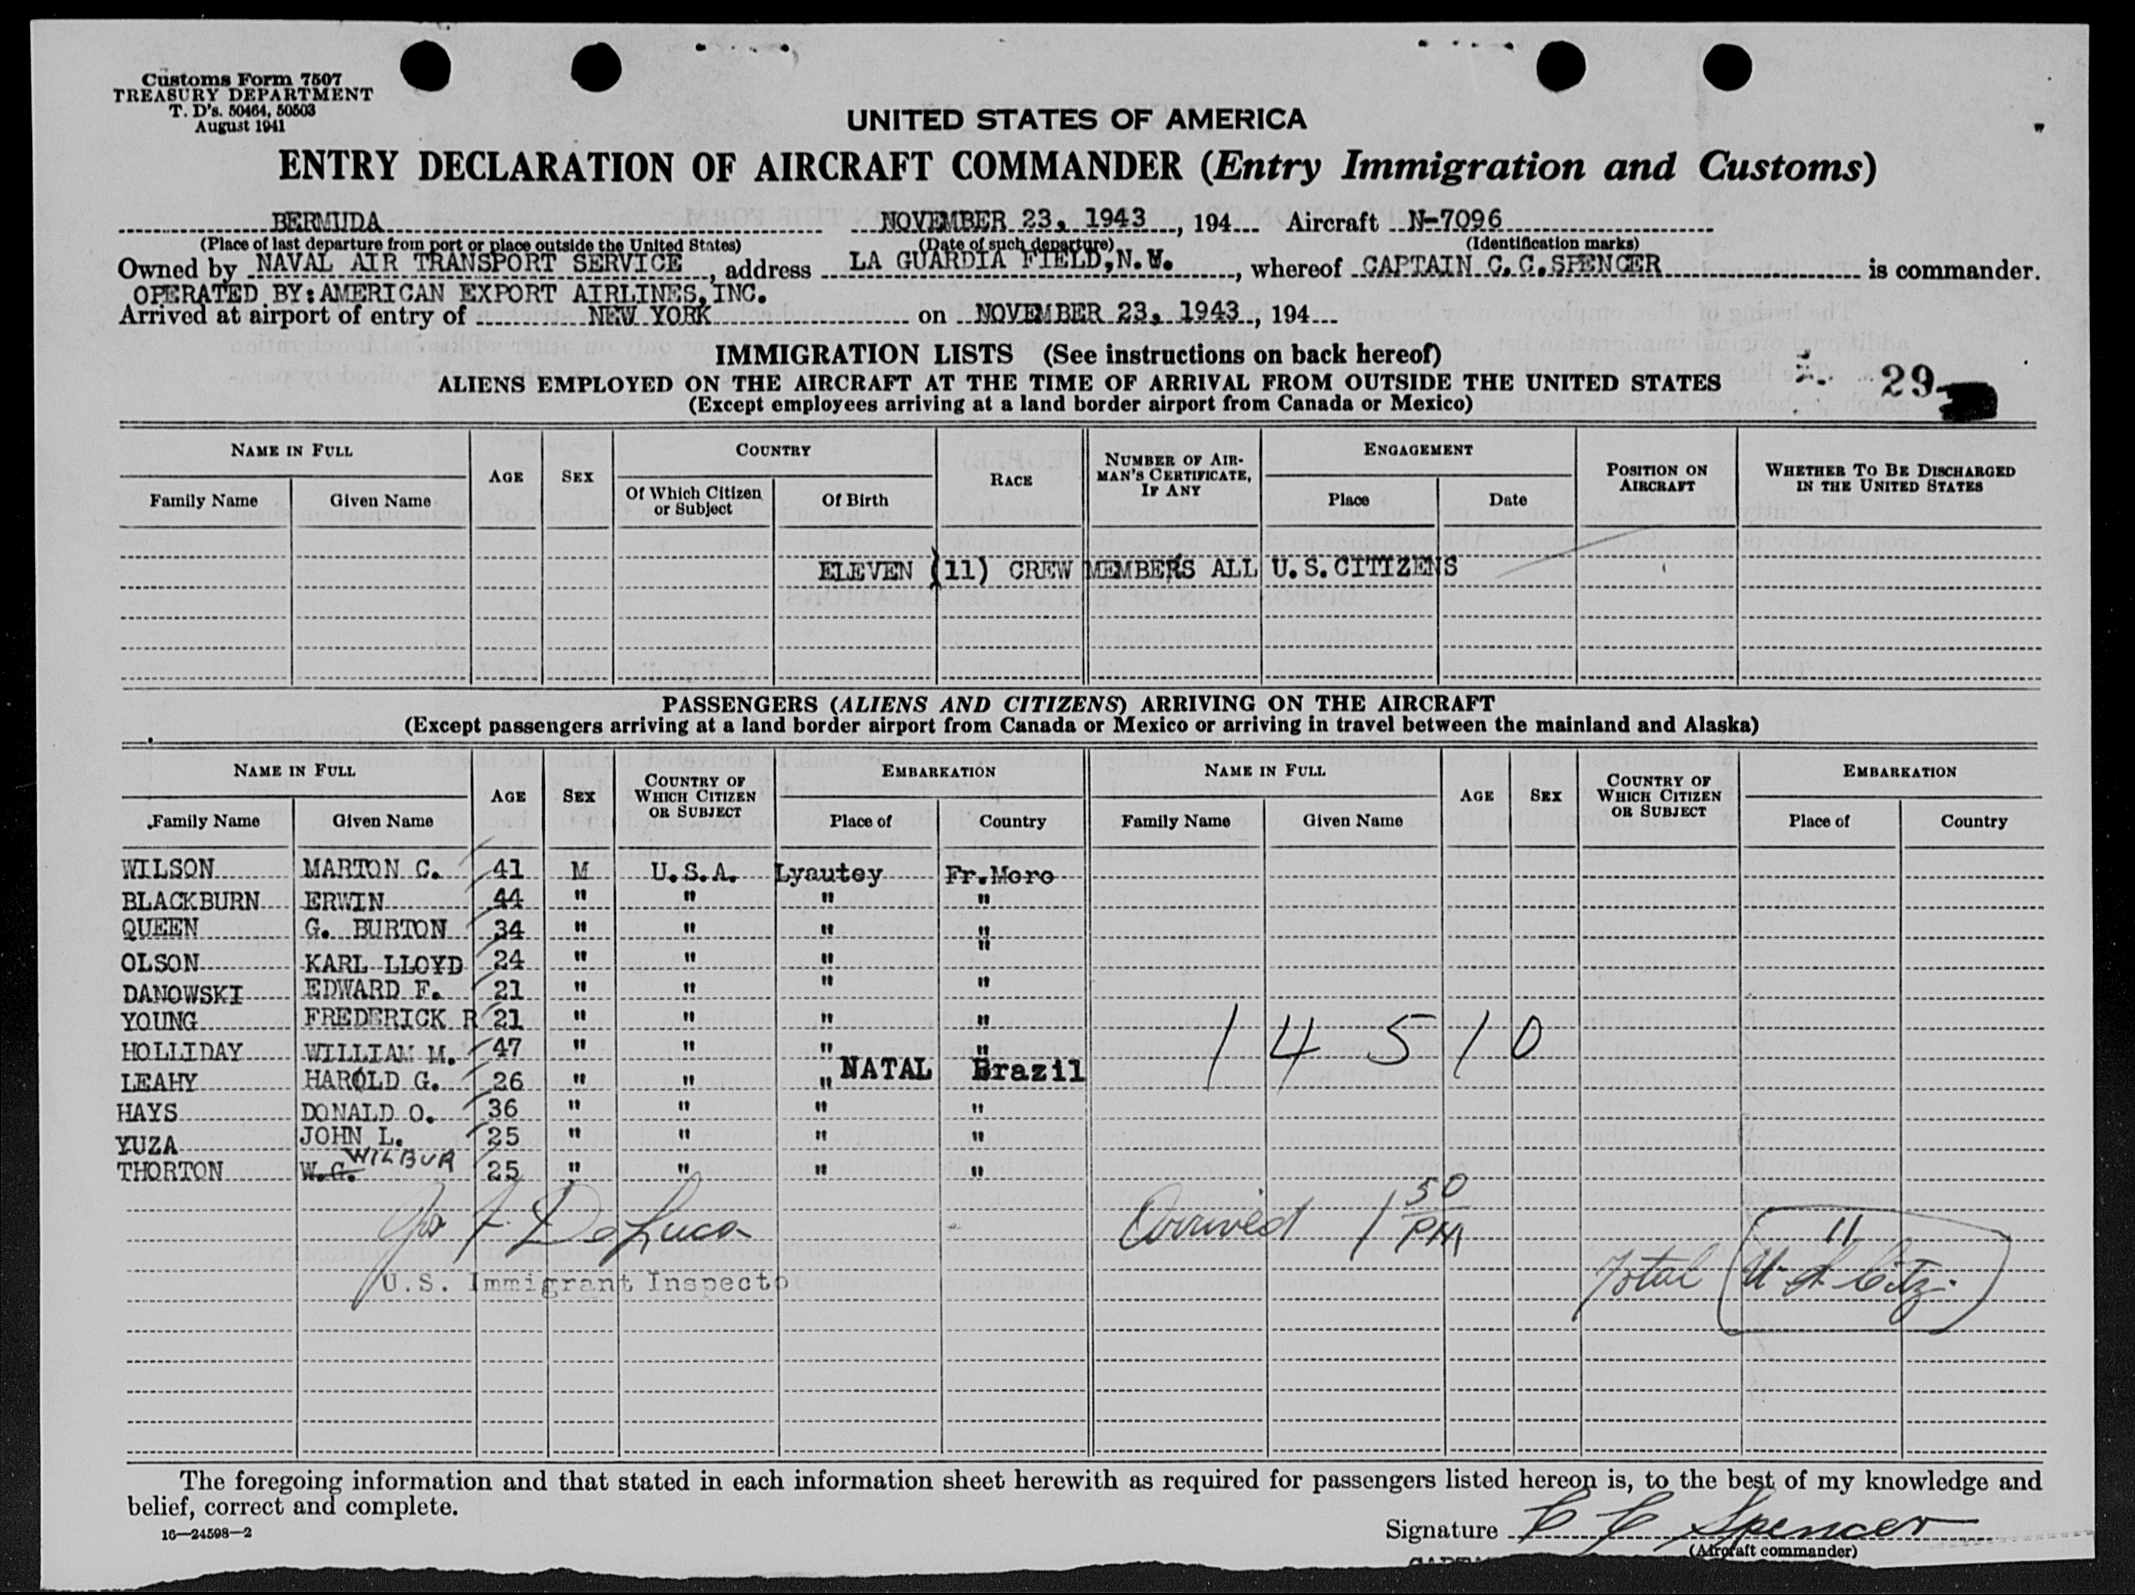 Customs Form 7507
TREASURY DEPARTMENT
T. D's. 50464, 50503
August 1941
UNITED STATES OF AMERICA
ENTRY DECLARATION OF AIRCRAFT COMMANDER (Entry Immigration and Customs)
BERMUDA NOVEMBER 23, 1943, 194 Aircraft N-7096
(Place of last departure from port or place outside the United States) (Date of such departure) (Identification marks)
Owned by NAVAL AIR TRANSPORT SERVICE, address LA GUARDIA FIELD, N.Y., whereof CAPTAIN C. C. SPENCER is commander.
OPERATED BY: AMERICAN EXPORT AIRLINES, INC.
Arrived at airport of entry of NEW YORK on NOVEMBER 23, 1943, 194
IMMIGRATION LISTS (See instructions on back hereof)
ALIENS EMPLOYED ON THE AIRCRAFT AT THE TIME OF ARRIVAL FROM OUTSIDE THE UNITED STATES 29
(Except employees arriving at a land border airport from Canada or Mexico)
NAME IN FULL AGE SEX COUNTRY RACE NUMBER OF AIRMAN'S CERTIFICATE, IF ANY ENGAGEMENT POSITION ON AIRCRAFT WHETHER TO BE DISCHARGED IN THE UNITED STATES
Family Name Given Name Of Which Citizen or Subject Of Birth Place Date
ELEVEN (11) CREW MEMBERS ALL U.S. CITIZENS
PASSENGERS (ALIENS AND CITIZENS) ARRIVING ON THE AIRCRAFT
(Except passengers arriving at a land border airport from Canada or Mexico or arriving in travel between the mainland and Alaska)
NAME IN FULL AGE SEX COUNTRY OF WHICH CITIZEN OR SUBJECT EMBARKATION NAME IN FULL AGE SEX COUNTRY OF WHICH CITIZEN OR SUBJECT EMBARKATION
Family Name Given Name Place of Country Family Name Given Name Place of Country
WILSON MARTON C. 41 M U.S.A. Lyautey Fr.Moro
BLACKBURN ERWIN 44 " " " "
QUEEN G. BURTON 34 " " " "
OLSON KARL LLOYD 24 " " " "
DANOWSKI EDWARD F. 21 " " " "
YOUNG FREDERICK R 21 " " " "
HOLLIDAY WILLIAM M. 47 " " " "
1 4 5 1 0
LEAHY HAROLD G. 26 " " " NATAL Brazil
HAYS DONALD O. 36 " " " "
YUZA JOHN L. 25 " " " "
THORTON W.G. WILBUR 25 " " " "
Jos F. DeLuca
Arrived 1 50 PM
U.S. Immigrant Inspecto
Total 11 U S Citz.
The foregoing information and that stated in each information sheet herewith as required for passengers listed hereon is, to the best of my knowledge and
belief, correct and complete.
16—24598—2
Signature C C Spencer
(Aircraft commander)